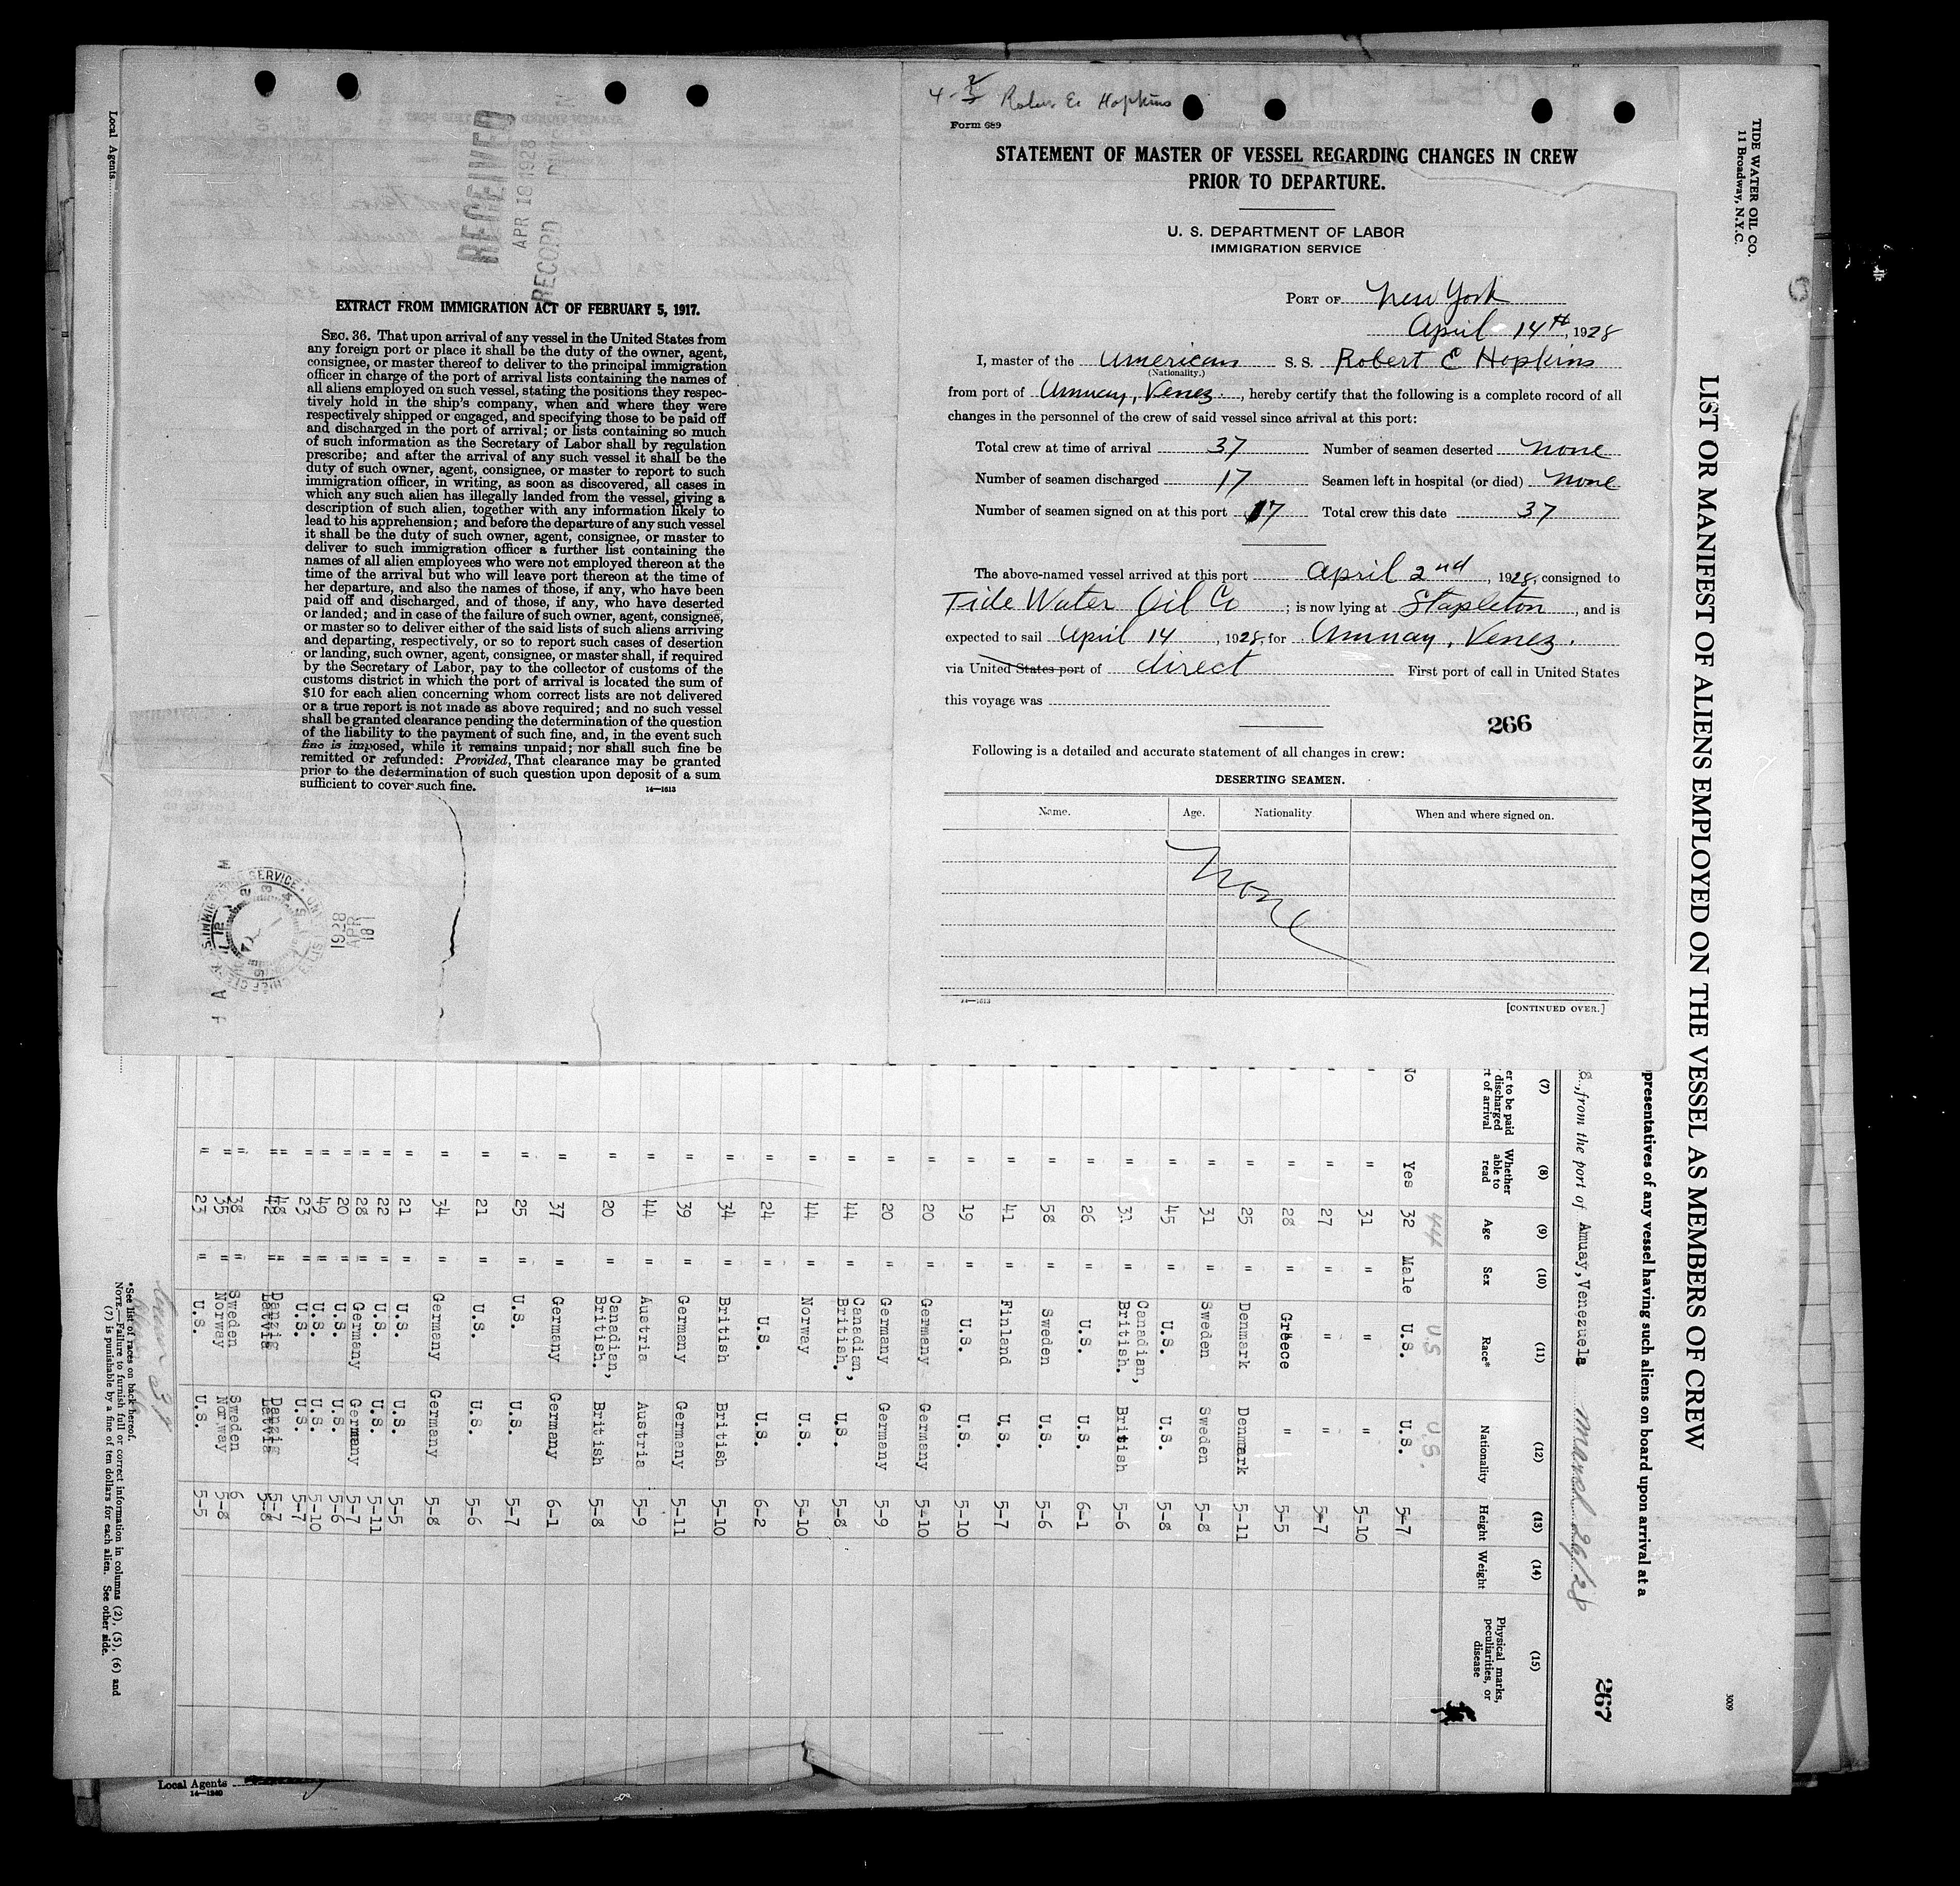 Local Agents
RECEIVED
APR 18 1928
RECORD
EXTRACT FROM IMMIGRATION ACT OF FEBRUARY 5, 1917.
SEC. 36. That upon arrival of any vessel in the United States from
any foreign port or place it shall be the duty of the owner, agent,
consignee, or master thereof to deliver to the principal immigration
officer in charge of the port of arrival lists containing the names of
all aliens employed on such vessel, stating the positions they respec-
tively hold in the ship's company, when and where they were
respectively shipped or engaged, and specifying those to be paid off
and discharged in the port of arrival; or lists containing so much
of such information as the Secretary of Labor shall by regulation
prescribe; and after the arrival of any such vessel it shall be the
duty of such owner, agent, consignee, or master to report to such
immigration officer, in writing, as soon as discovered, all cases in
which any such alien has illegally landed from the vessel, giving a
description of such alien, together with any information likely to
lead to his apprehension; and before the departure of any such vessel
it shall be the duty of such owner, agent, consignee, or master to
deliver to such immigration officer a further list containing the
names of all alien employees who were not employed thereon at the
time of the arrival but who will leave port thereon at the time of
her departure, and also the names of those, if any, who have been
paid off and discharged, and of those, if any, who have deserted
or landed; and in case of the failure of such owner, agent, consignee,
or master so to deliver either of the said lists of such aliens arriving
and departing, respectively, or so to report such cases of desertion
or landing, such owner, agent, consignee, or master shall, if required
by the Secretary of Labor, pay to the collector of customs of the
customs district in which the port of arrival is located the sum of
$10 for each alien concerning whom correct lists are not delivered
or a true report is not made as above required; and no such vessel
shall be granted clearance pending the determination of the question
of the liability to the payment of such fine, and, in the event such
fine is imposed, while it remains unpaid; nor shall such fine be
remitted or refunded: Provided, That clearance may be granted
prior to the determination of such question upon deposit of a sum
sufficient to cover such fine.
14—1613
1928
APR
18
Robert E. Hopkins
Form 689
STATEMENT OF MASTER OF VESSEL REGARDING CHANGES IN CREW
PRIOR TO DEPARTURE.
U. S. DEPARTMENT OF LABOR
IMMIGRATION SERVICE
PORT OF New York
April 14th, 1928
I, master of the American S. S. Robert E Hopkins
(Nationality.)
from port of Amuay, Venez., hereby certify that the following is a complete record of all
changes in the personnel of the crew of said vessel since arrival at this port:
Total crew at time of arrival 37 Number of seamen deserted none
Number of seamen discharged 17 Seamen left in hospital (or died) none
Number of seamen signed on at this port 17 Total crew this date 37
The above-named vessel arrived at this port April 2nd, 1928, consigned to
Tide Water Oil Co; is now lying at Stapleton, and is
expected to sail April 14, 1928, for Amuay, Venez.
via United States port of direct First port of call in United States
this voyage was
266
Following is a detailed and accurate statement of all changes in crew:
DESERTING SEAMEN.
Name. Age. Nationality When and where signed on.
None
14—1613
[CONTINUED OVER.]
TIDE WATER OIL CO.
11 Broadway, N.Y.C.
LIST OR MANIFEST OF ALIENS EMPLOYED ON THE VESSEL AS MEMBERS OF CREW
3009
presentatives of any vessel having such aliens on board upon arrival at a
8, from the port of Amuay, Venezuela March 26/28
267
(7) (8) (9) (10) (11) (12) (13) (14) (15)
er to be paid
discharged
t of arrival
Whether
able to
read
Age
Sex
Race*
Nationality
Height
Weight
Physical marks,
peculiarities, or
disease
44 U.S. U.S.
No Yes 32 Male U.S. U.S. 5-7
" 31 " " " 5-10
" 27 " " " 5-7
" 28 " Greece " 5-5
" 25 " Denmark Denmark 5-11
" 31 " Sweden Sweden 5-8
" 45 " U.S. U.S. 5-8
" 31 " Canadian, British. British 5-6
" 26 " U.S. U.S. 6-1
" 58 " Sweden U.S. 5-6
" 41 " Finland U.S. 5-7
" 19 " U.S. U.S. 5-10
" 20 " Germany Germany 5-10
" 20 " Germany Germany 5-9
" 44 " Canadian, British, U.S. 5-8
" 44 " Norway U.S. 5-10
" 24 " U.S. U.S. 6-2
" 34 " British British 5-10
" 39 " Germany Germany 5-11
" 44 " Austria Austria 5-9
" 20 " Canadian, British. British 5-8
" 37 " Germany Germany 6-1
" 25 " U.S. U.S. 5-7
" 21 " U.S. U.S. 5-6
" 34 " Germany Germany 5-8
" 21 " U.S. U.S. 5-5
" 22 " U.S. U.S. 5-11
" 28 " Germany Germany 5-7
" 20 " U.S. U.S. 5-6
" 49 " U.S. U.S. 5-10
" 23 " U.S. U.S. 5-7
" 48 " Danzig Danzig 5-7
" " Latvia Latvia 5-8
" 38 " Sweden Sweden 6
" 35 " Norway Norway 5-8
" 23 " U.S. U.S. 5-5
*See list of races on back hereof.
NOTE.—Failure to furnish full or correct information in columns (2), (5), (6) and
(7) is punishable by a fine of ten dollars for each alien. See other side.
Local Agents
14—1240